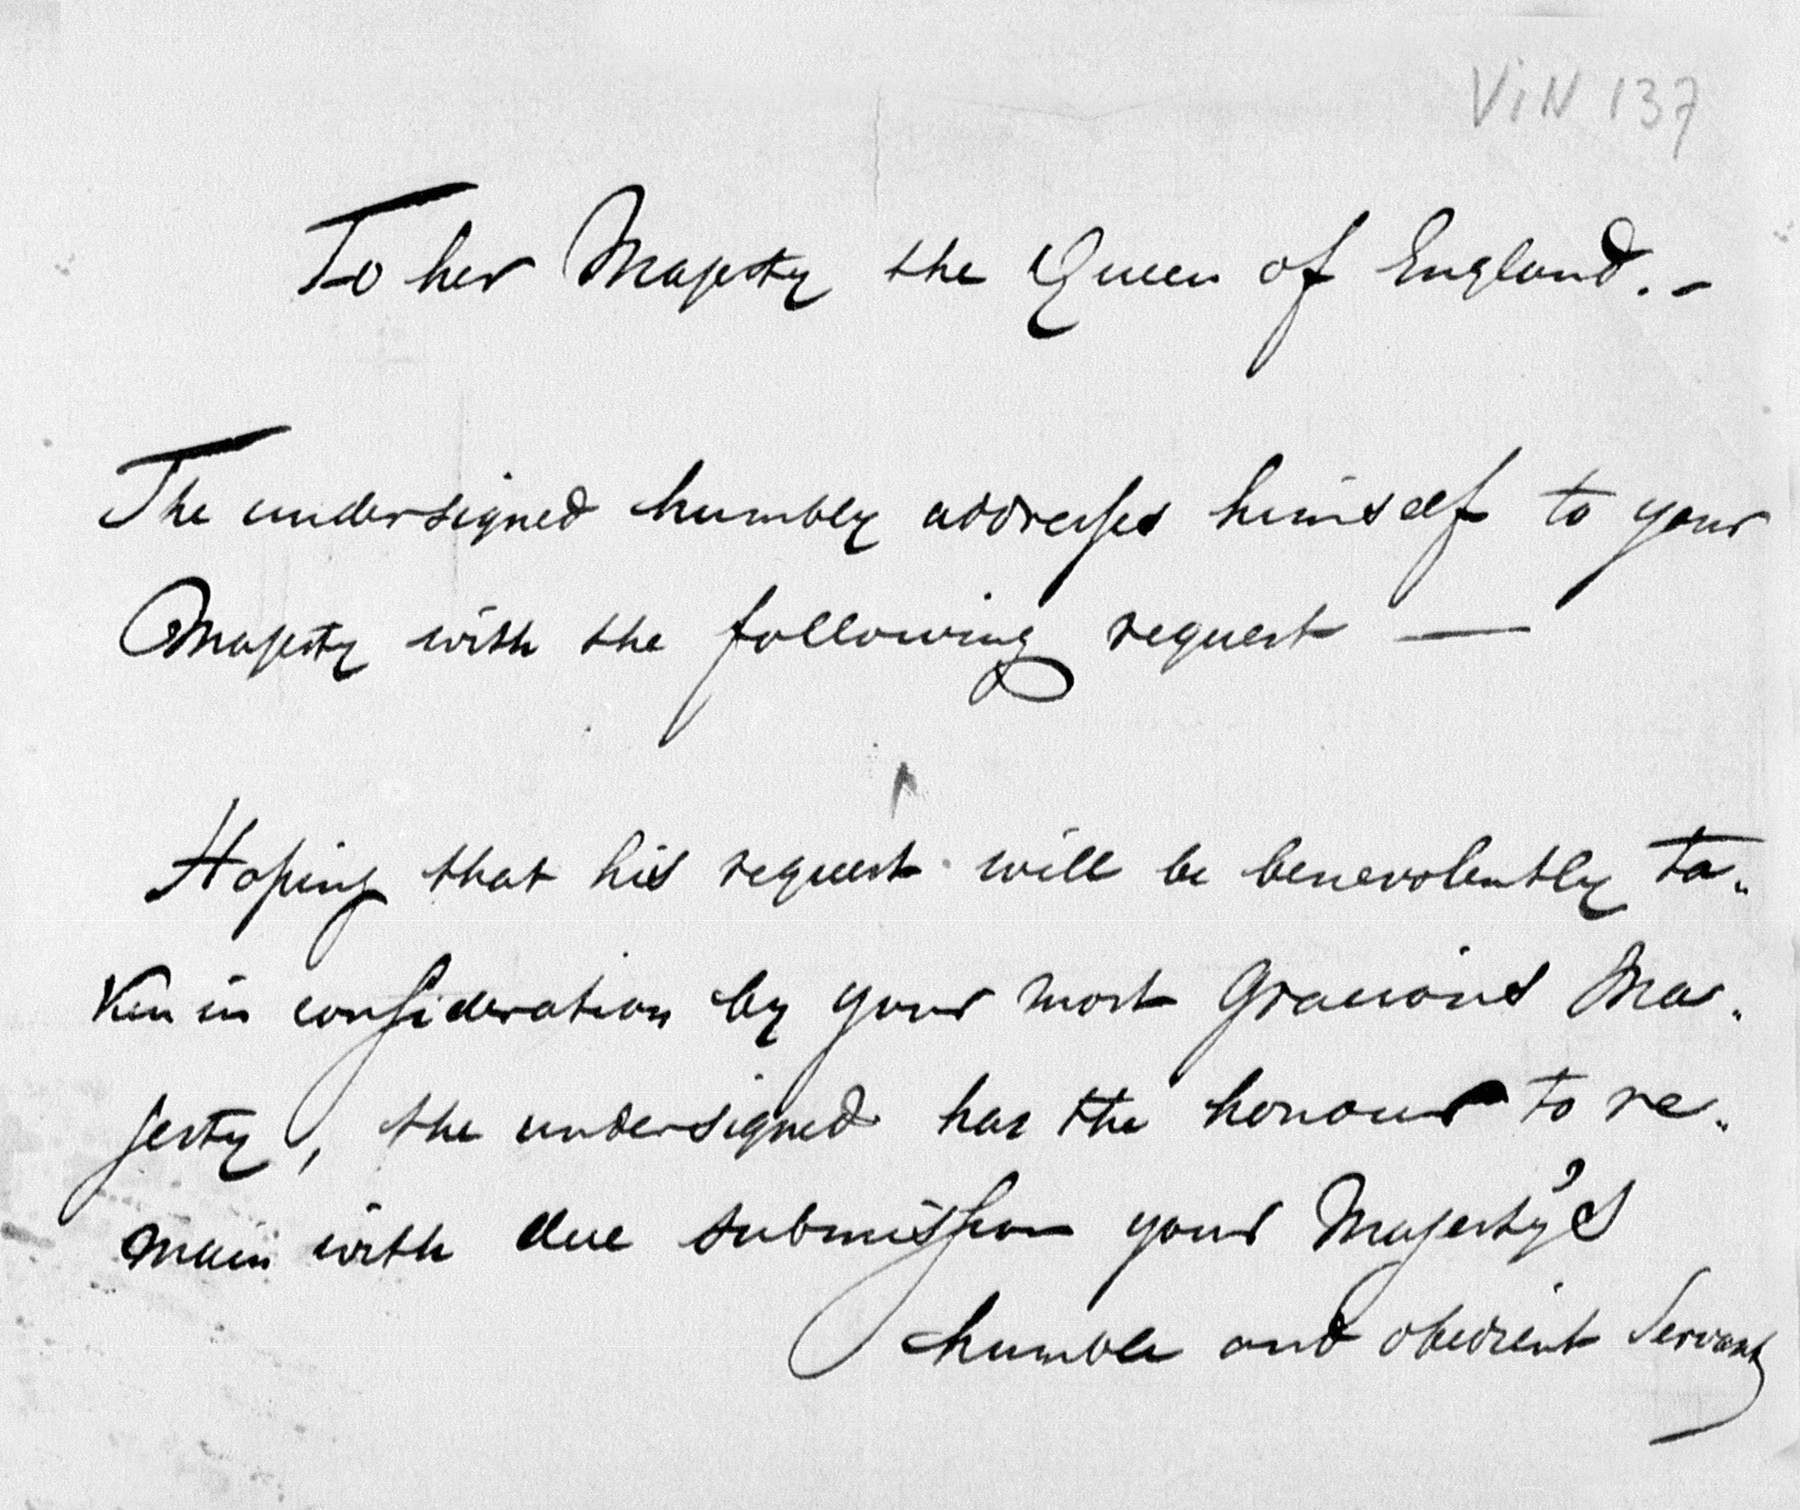 ViN 137
To her Majesty the Queen of England. -
The undersigned humbly addresses himself to your
Majesty with the following request —
Hoping that his request will be benevolently ta-
ken in consideration by your most Gracious Ma-
jesty, the undersigned has the honour to re-
main with due submission your Majesty's
humble and obedient Servant